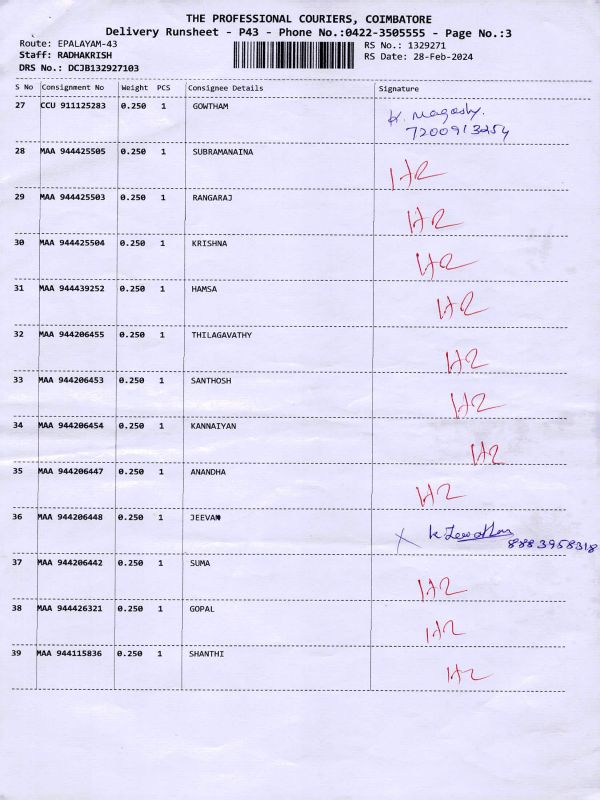 THE PROFESSIONAL COURIERS, COIMBATORE
Delivery Runsheet - P43 - Phone No.:0422-3505555 - Page No.:3
Route: EPALAYAM-43 RS No.: 1329271
Staff: RADHAKRISH RS Date: 28-Feb-2024
DRS No.: DCJB132927103
S No Consignment No Weight PCS Consignee Details Signature
27 CCU 911125283 0.250 1 GOWTHAM
7200913254
28 MAA 944425505 0.250 1 SUBRAMANAINA
29 MAA 944425503 0.250 1 RANGARAJ
30 MAA 944425504 0.250 1 KRISHNA
31 MAA 944439252 0.250 1 HAMSA
32 MAA 944206455 0.250 1 THILAGAVATHY
33 MAA 944206453 0.250 1 SANTHOSH
34 MAA 944206454 0.250 1 KANNAIYAN
35 MAA 944206447 0.250 1 ANANDHA
36 MAA 944206448 0.250 1 JEEVAN
8883958318
37 MAA 944206442 0.250 1 SUMA
38 MAA 944426321 0.250 1 GOPAL
39 MAA 944115836 0.250 1 SHANTHI